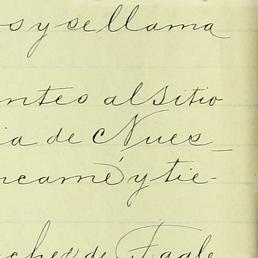 s y se llama
ntes al sitio
ia de Nues_
ncamé y tie-
ches de Tagle